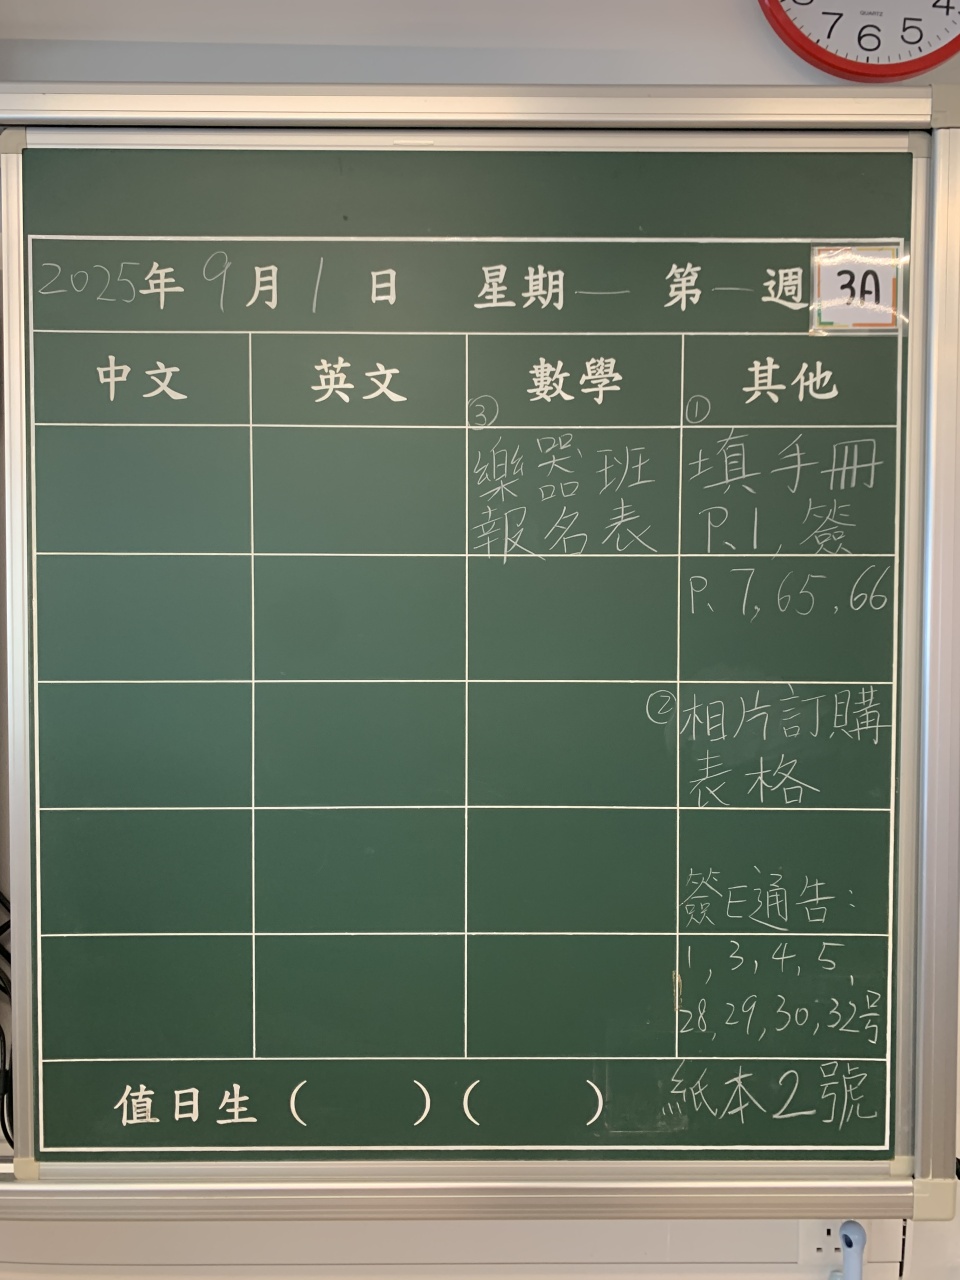 7 6 5 4
QUARTZ
2025年 9月 1日 星期一 第一週 3A
中文 英文 數學 其他
③
樂器班
報名表
①
填手冊
P.1, 簽
P. 7, 65, 66
② 相片訂購
表格
簽E通告:
1, 3, 4, 5,
28, 29, 30, 32号
值日生 ( ) ( ) 紙本2號